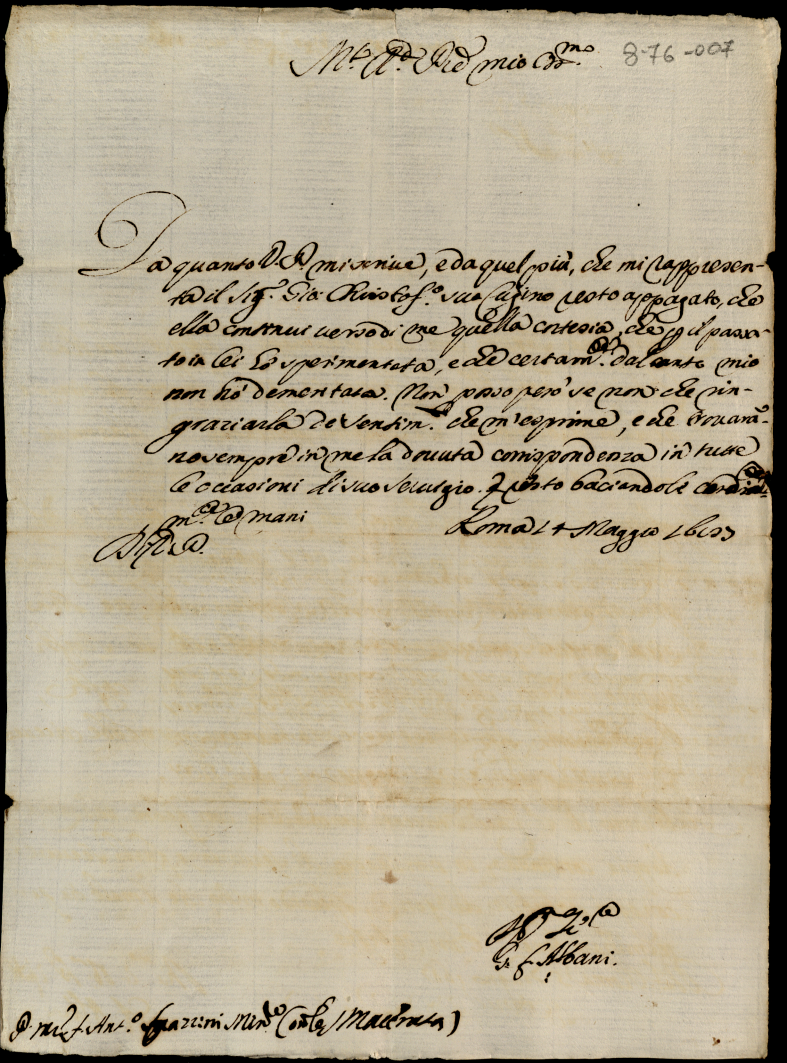 M.to R.do P.re mio Oss.mo
8-76-007
Da quanto V. P. mi scrive, e da quel più, che mi rappresen-
ta il Sig.r Gio: Cristof.o suo Cugino resto appagato, che
ella continui verso di me quella cortesia, che p il passa-
to in lei hò sperimentata, e che certam.te dal canto mio
non hò demeritata. Non posso però se non che rin-
graziarla de Sentim.ti che m'esprime, e che trovaran-
no sempre in me la dovuta corrispondenza in tutte
le occasioni di suo servigio. E resto baciandole cordial-
m.te le mani
Roma 14 Maggio
D. V. P.
G. F. Albani.
P. Ant.o Min.e Conv.le Macerata)